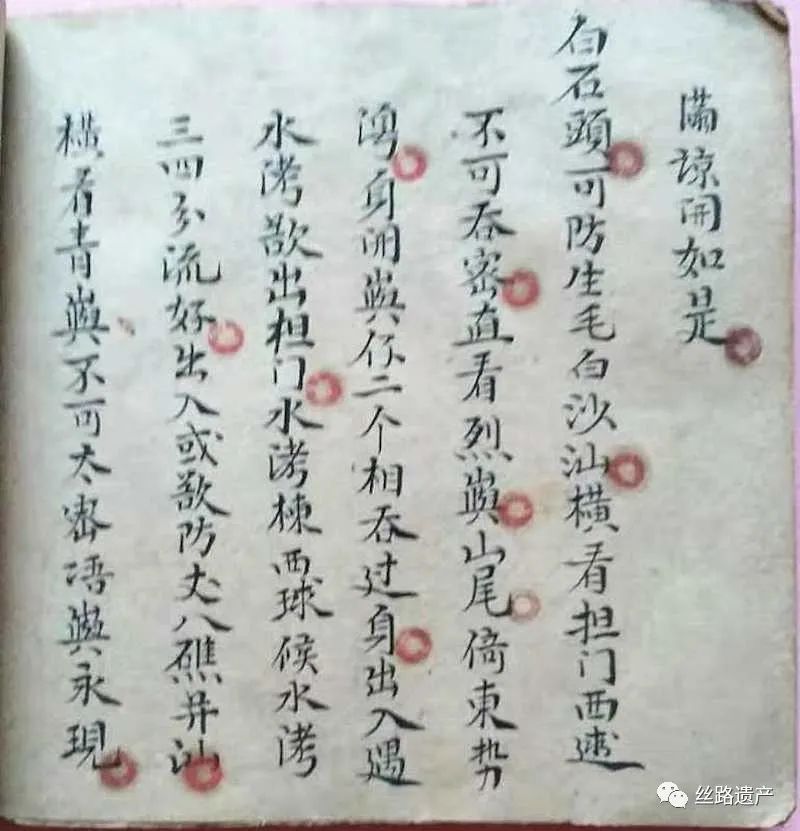 諒開如是
白石頭可防生毛白沙汕横看担门西逑
不可吞密直看烈㠘山尾倚東势
湾身開㠘仔二个相吞过身出入遇
水涝欲出担门水涝棟西球候水涝
三四分流好出入或欲防丈八礁并汕
横看青㠘不可太密㠘永現
丝路遗产